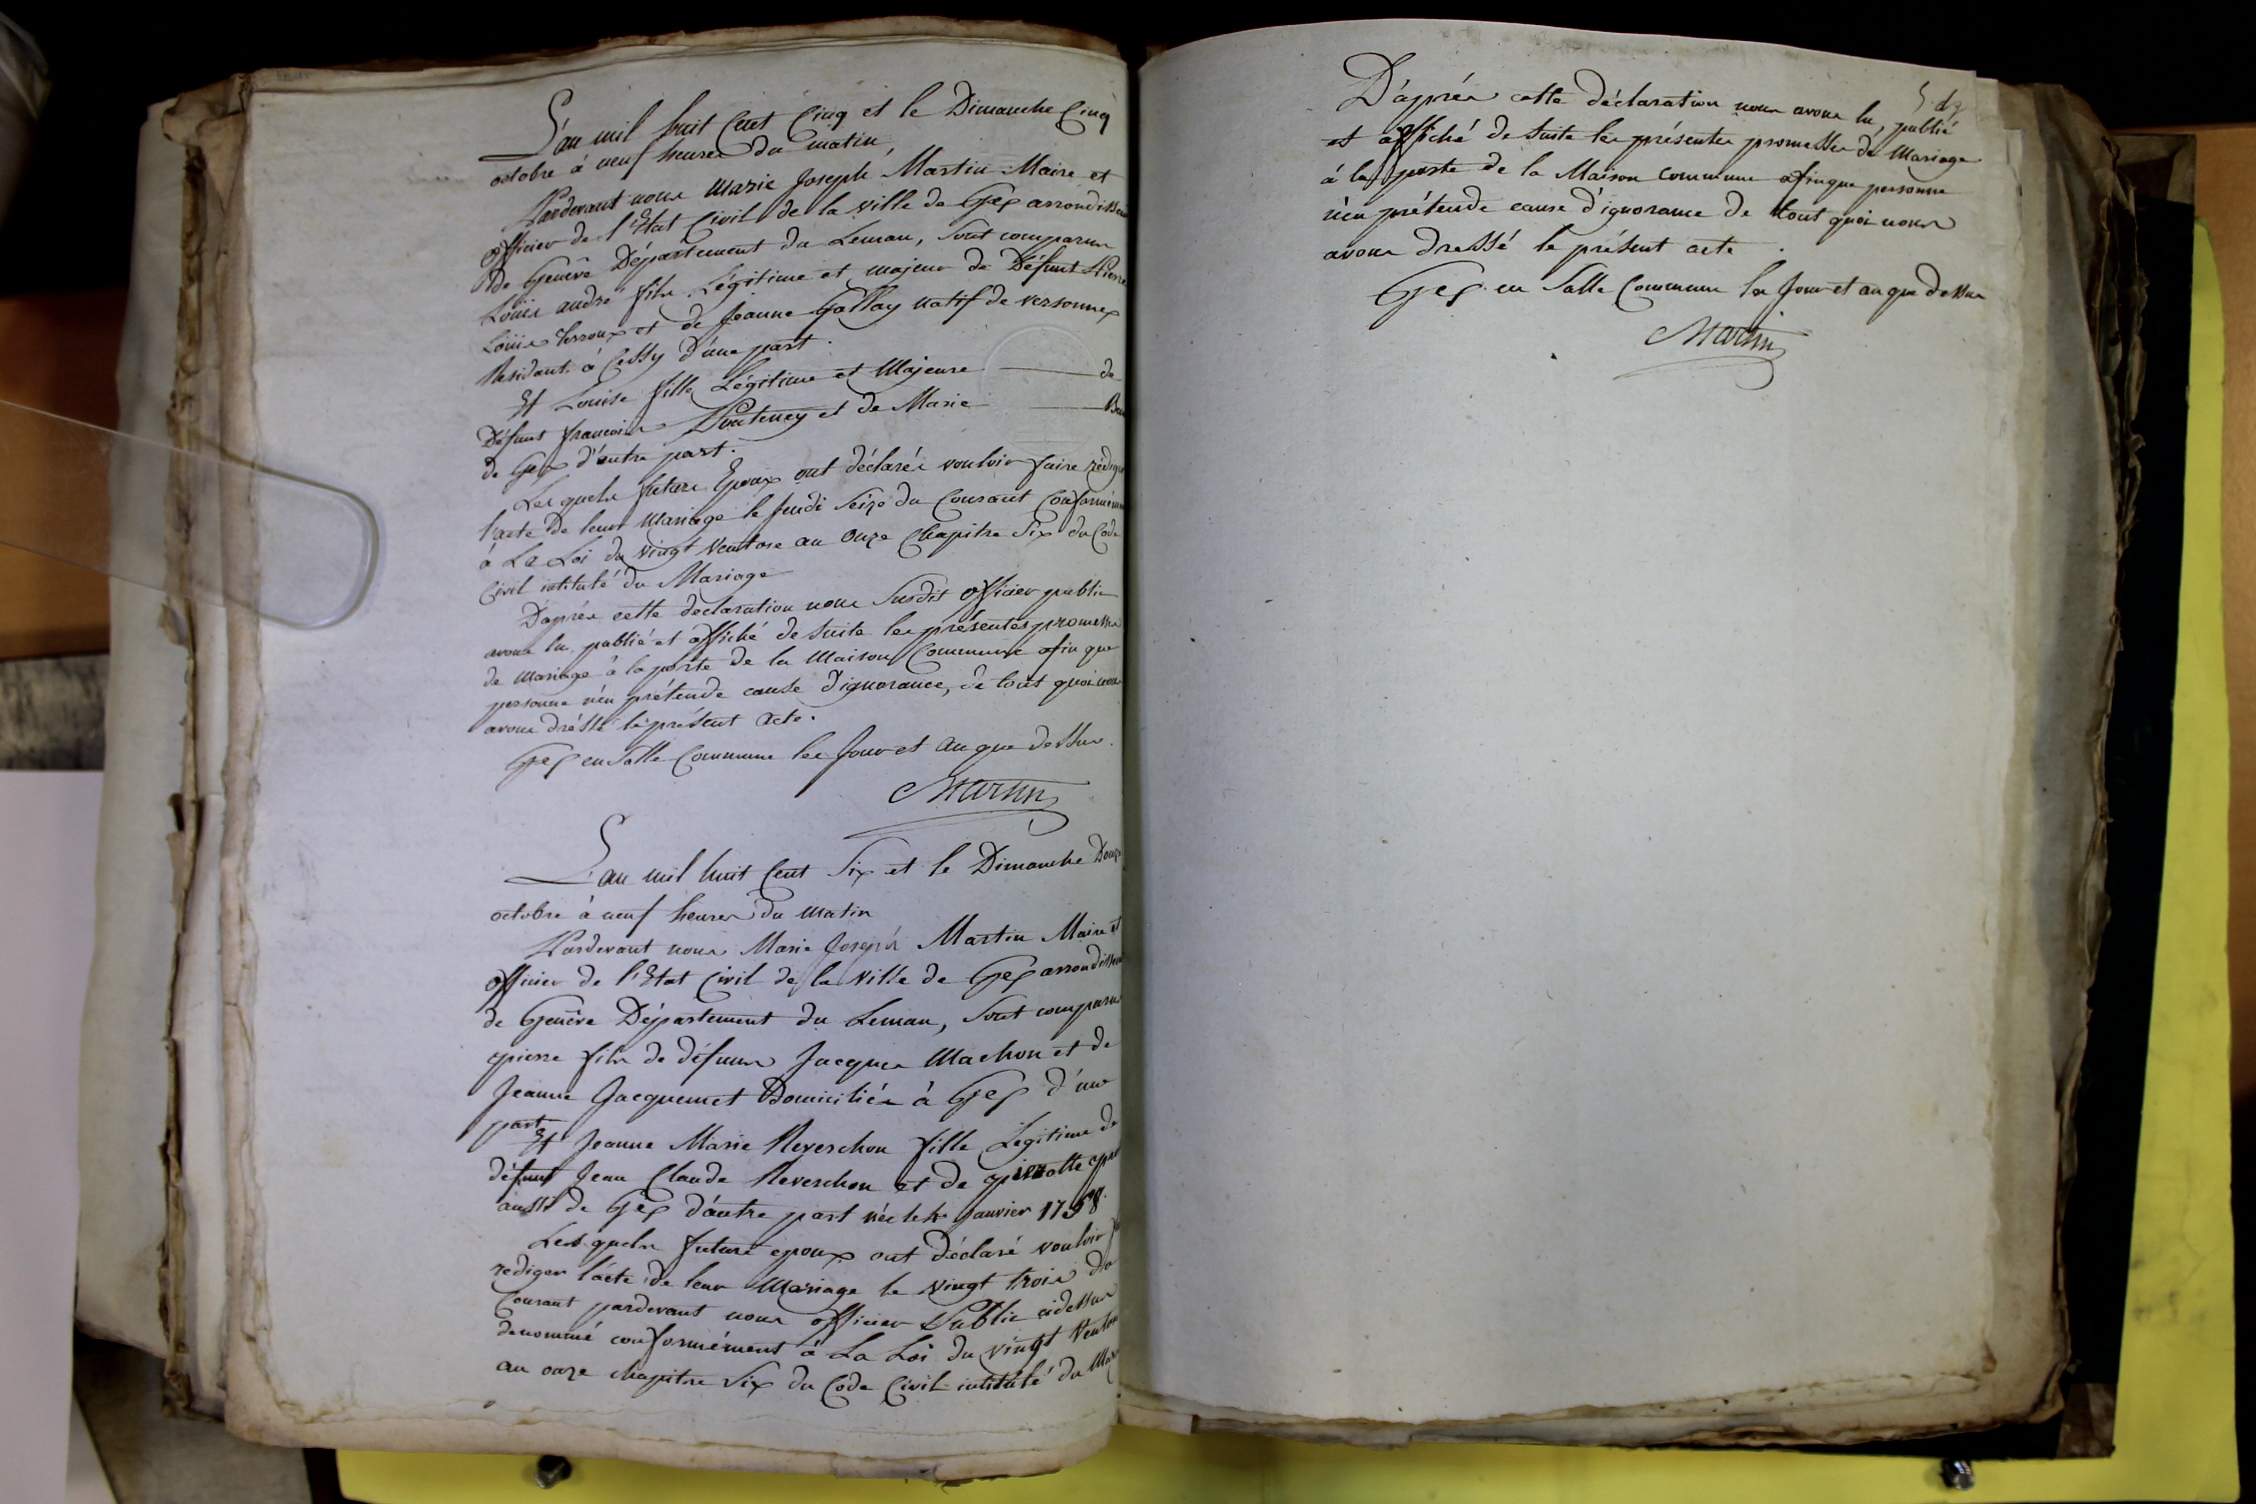 L'an mil huit Cent Cinq et le Dimanche Cinq
octobre à neuf heures du matin,
Pardevant nous Marie Joseph Martin Maire et
officier de l'Etat Civil de la ville de Gex arrondissem
de Genève Département du Leman, sont comparus
Louis andré fils Légitime et majeur de Défunt Pierre
Louis et de Jeanne Gallay natif de versonnex
Résidant à Cessy d'une part.
Et Louise fille Légitime et Majeure de
Défunt françois Ponteney et de Marie
de Gex d'autre part.
Lesquels futurs Epoux ont déclarés vouloir faire rédiger
l'acte de leur Mariage le Jeudi Seize du Courant Conformém
à La Loi du vingt Ventose an Onze Chapitre Six du Code
Civil intitulé du Mariage
D'après cette declaration nous Susdit officier public
avons lu, publié et affiché de suite les présentes promesses
de Mariage à la porte de la Maison Commune afin que
personne n'en prétende cause d'ignorance, de tout quoi nous
avons dréssé le présent acte.
Gex en Salle Commune les Jour et an que dessus.
Martin
L'an mil huit Cent Six et le Dimanche Douze
octobre à neuf heures du matin
Pardevant nous Marie Joseph Martin Maire et
officier de l'Etat Civil de la ville de Gex arrondissem
de Genève Département du Leman, sont comparus
pierre fils de défunts Jacques Machon et de
Jeanne Jacquemet Domiciliés à Gex d'une
part
Et Jeanne Marie Reverchon fille Légitime de
défunt Jean Claude Reverchon et de pierrotte
aussi de Gex d'autre part née le Janvier
Lesquels futurs époux ont déclaré vouloir
rediger l'acte de leur Mariage le vingt trois du
Courant pardevant nous officier Public cidessus
denommé conformément à La Loi du vingt Ventose
an onze chapitre Six du Code Civil intitulé du Mar
D'après cette déclaration nous avons lu, publié
et affiché de suite les présentes promesses de Mariage
à la porte de la Maison Commune afinque personne
n'en prétende cause d'ignorance de tout quoi nous
avons dressé le présent acte.
Gex en Salle Commune les Jour et an que dessus
Martin